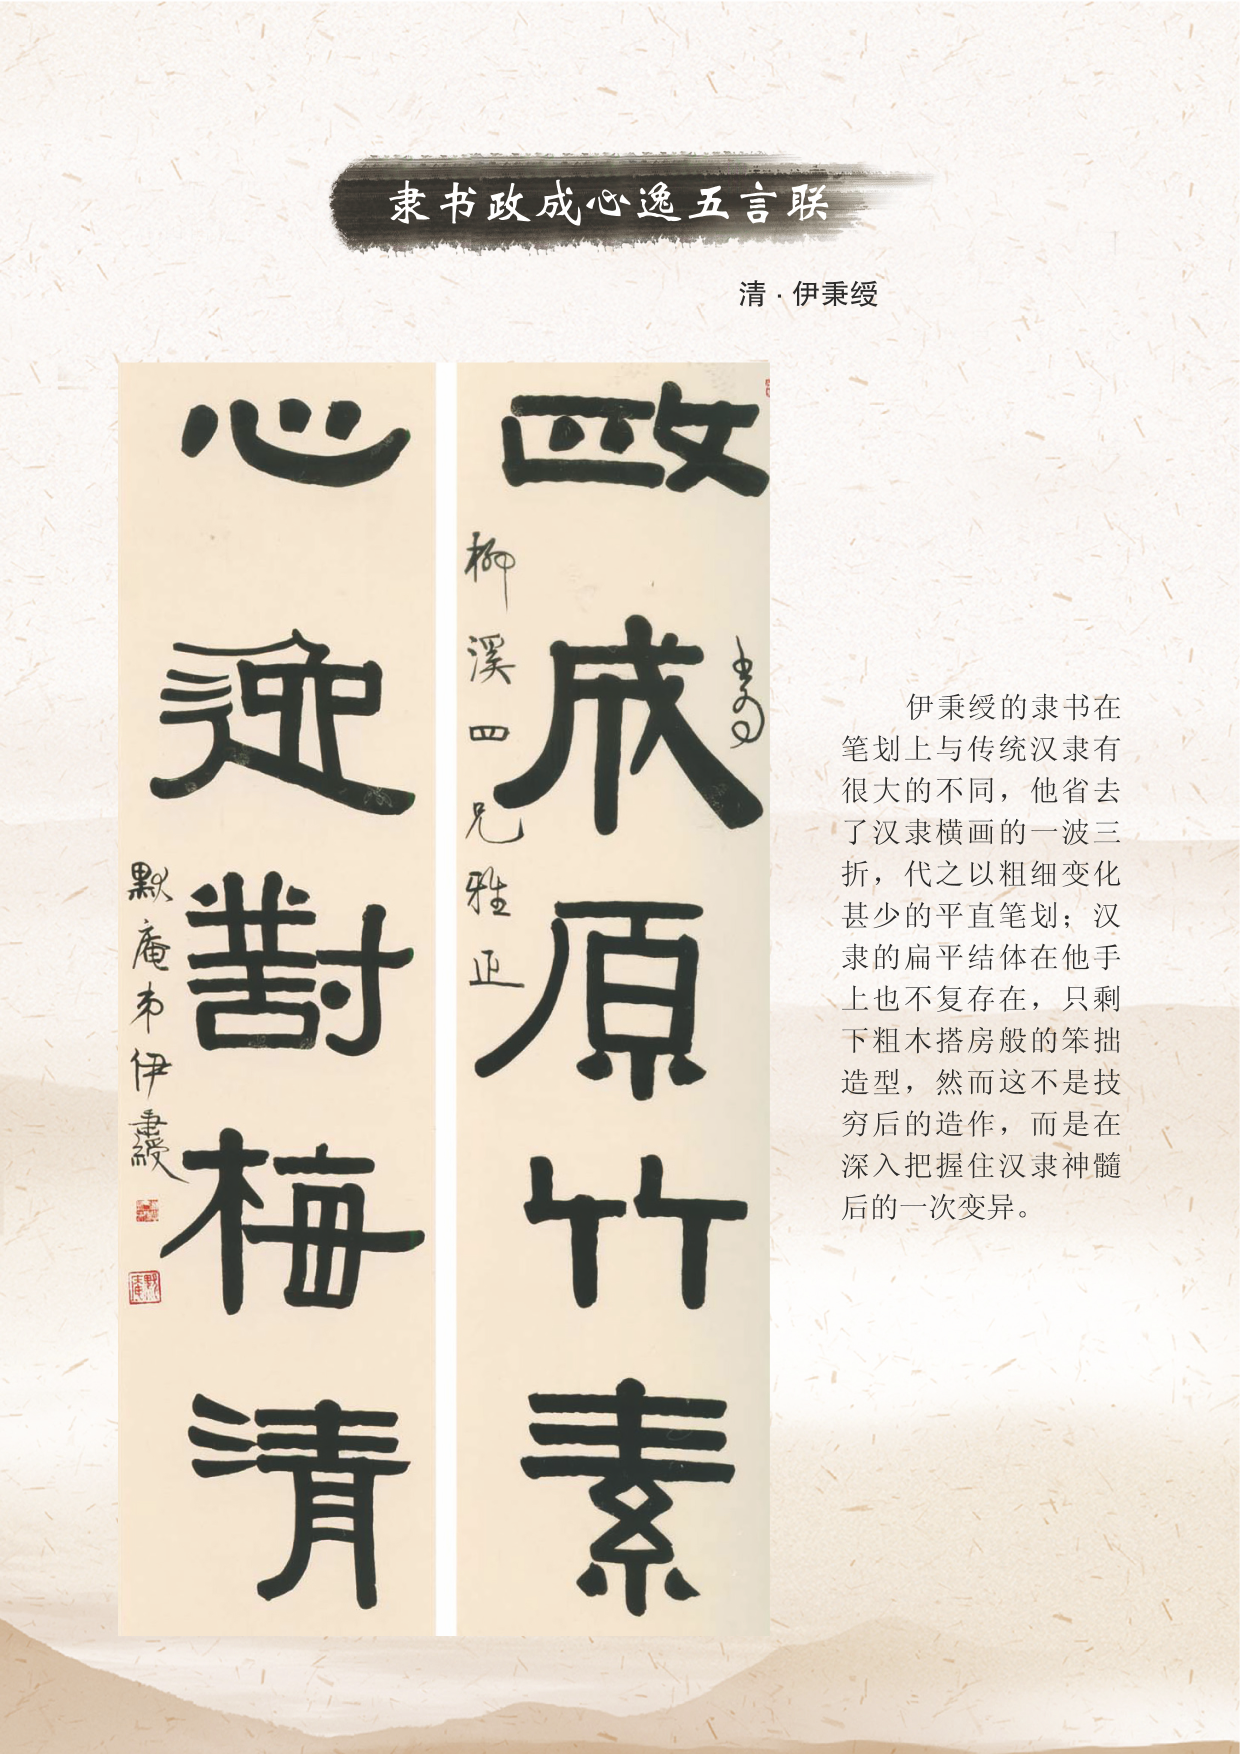 隶书政成心逸五言联
清·伊秉绶
政成原竹素
心迹對梅清
書為
柳溪四兄雅正
默庵弟伊秉綬
伊秉绶的隶书在
笔划上与传统汉隶有
很大的不同，他省去
了汉隶横画的一波三
折，代之以粗细变化
甚少的平直笔划；汉
隶的扁平结体在他手
上也不复存在，只剩
下粗木搭房般的笨拙
造型，然而这不是技
穷后的造作，而是在
深入把握住汉隶神髓
后的一次变异。